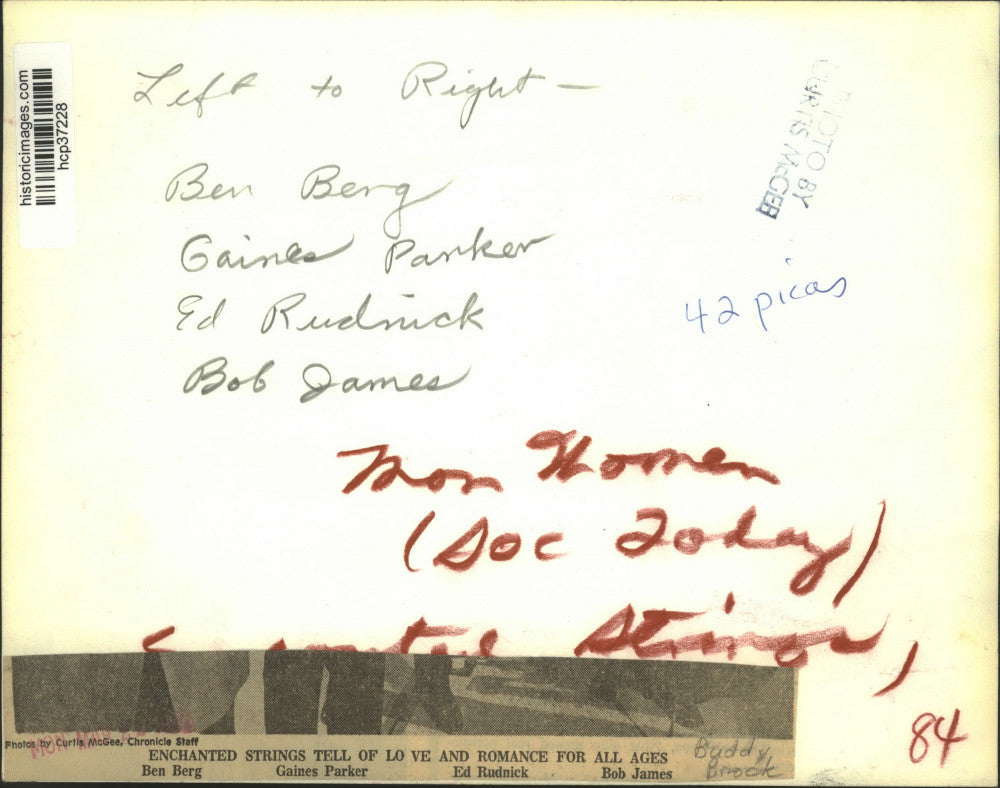 historicimages.com
hcp37228
Left to Right —
PHOTO BY
CURTIS McGEE
Ben Berg
Gaines Parker
Ed Rudnick
42 picas
Bob James
Mon Women
(Soc Today)
Strings,
84
Photos by Curtis McGee, Chronicle Staff
MON
ENCHANTED STRINGS TELL OF LO VE AND ROMANCE FOR ALL AGES
Ben Berg Gaines Parker Ed Rudnick Bob James
Buddy
Brock